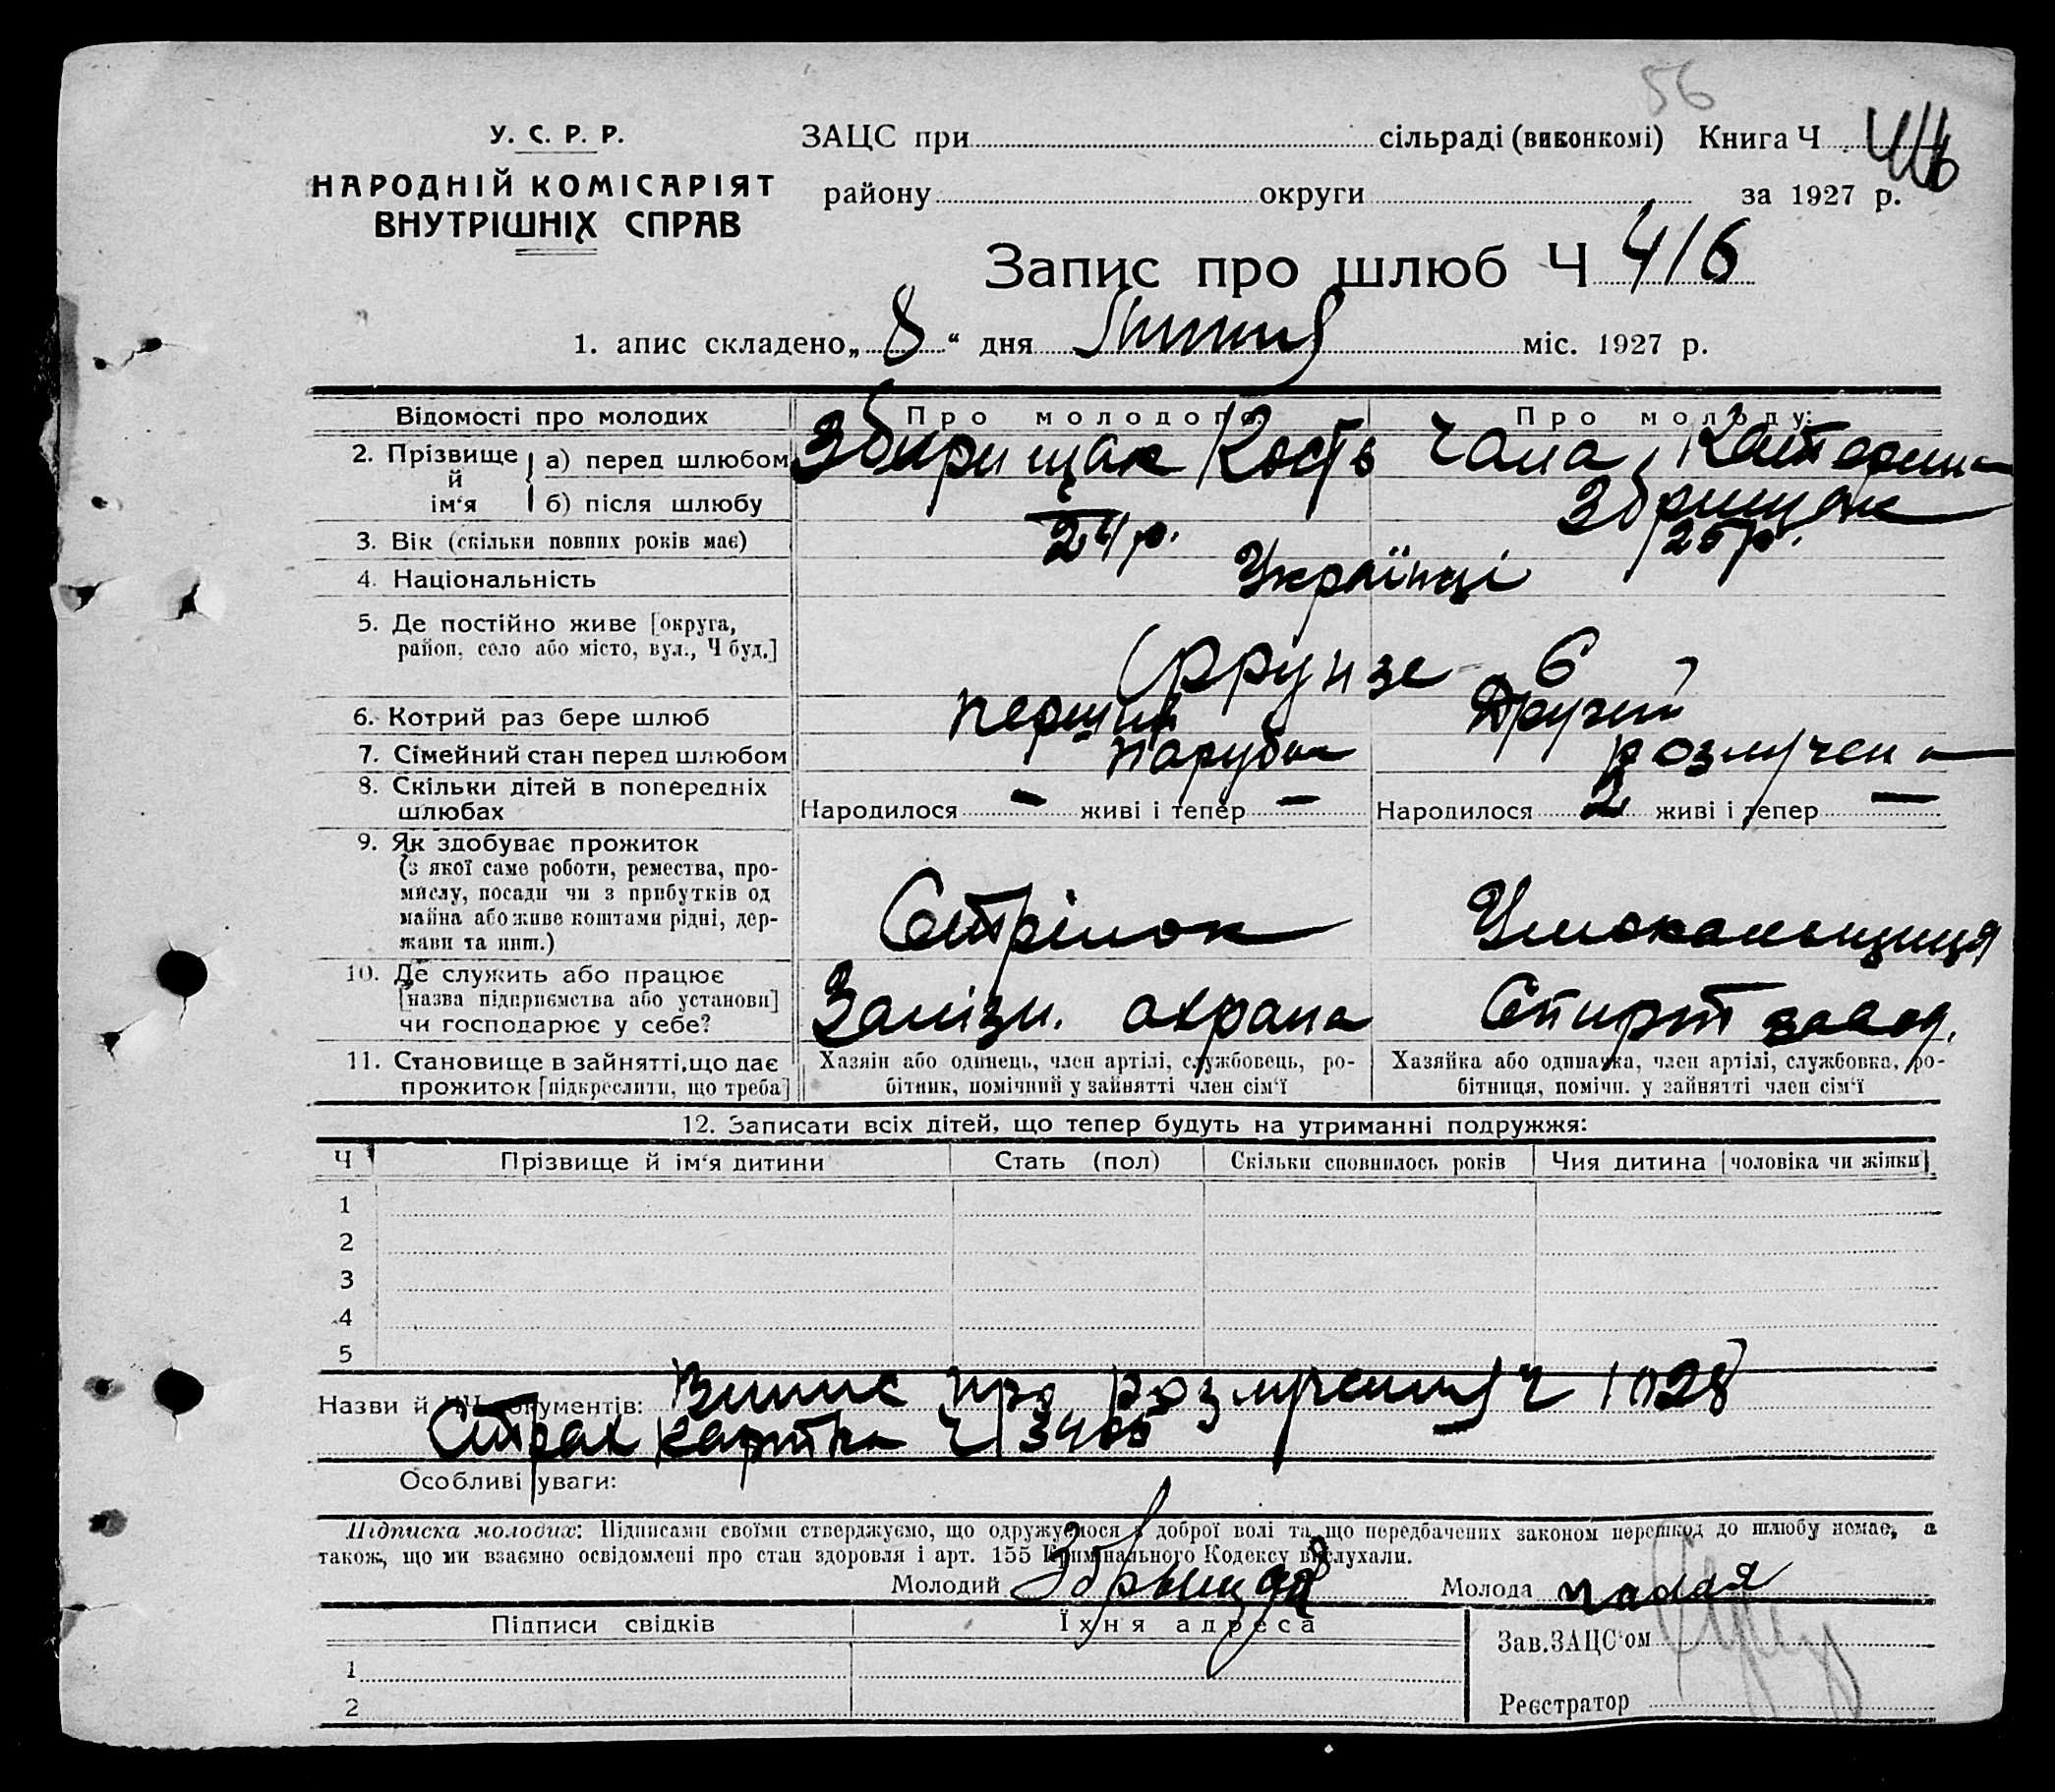 56
У. С. Р. Р.
НАРОДНІЙ КОМІСАРІЯТ
ВНУТРІШНІХ СПРАВ
ЗАЦС при сільраді (виконкомі) Книга Ч
району округи за 1927 р.
Запис про шлюб Ч 416
1. апис складено „ 8 “ дня Липня міс. 1927 р.
Відомості про молодих Про молодого: Про молоду:
2. Прізвище й ім'я а) перед шлюбом Збирищак Кость Чала Катерина
б) після шлюбу Збрищак
3. Вік (скільки повних років має) 24 р. 25 р.
4. Національність Українці
5. Де постійно живе [округа,
район, село або місто, вул., Ч буд.] Фрунзе 6
6. Котрий раз бере шлюб Перший Другий
7. Сімейний стан перед шлюбом парубок розлучена
8. Скільки дітей в попередніх
шлюбах Народилося — живі і тепер — Народилося 2 живі і тепер —
9. Як здобуває прожиток
(з якої саме роботи, ремества, про-
мислу, посади чи з прибутків од
майна або живе коштами рідні, дер-
жави та инш.) Стрілок
10. Де служить або працює
[назва підприємства або установи]
чи господарює у себе? Залізн. охрана Спирт завод.
11. Становище в зайнятті, що дає
прожиток [підкреслити, що треба]
Хазяін або одинець, член артілі, службовець, ро-
бітник, помічний у зайнятті член сім'ї
Хазяйка або одиначка, член артілі, службовка, ро-
бітниця, помічн. у зайнятті член сім'ї
12. Записати всіх дітей, що тепер будуть на утриманні подружжя:
Ч Прізвище й ім'я дитини Стать (пол) Скільки сповнилось років Чия дитина [чоловіка чи жінки]
1
2
3
4
5
Назви й ЧЧ документів: Випис про розлучення Ч 1028
Страх картка Ч 3400
Особливі уваги:
Підписка молодих: Підписами своїми стверджуємо, що одружуємося з доброї волі та що передбачених законом перешкод до шлюбу немає, а
також, що ми взаємно освідомлені про стан здоровля і арт. 155 Кримінального Кодексу вислухали.
Молодий Збрыщак Молода Чалая
Підписи свідків Їхня адреса
Зав. ЗАЦС'ом
1
Реєстратор
2